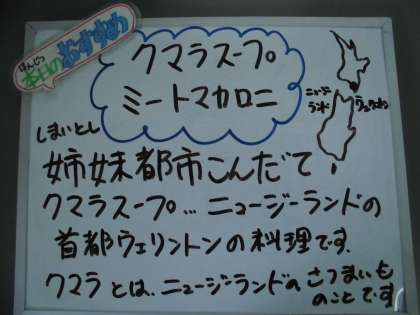 ほんじつ
本日のおすすめ
クマラスープ
ミートマカロニ
ニュージーランド
しまいとし
姉妹都市こんだて
クマラスープ…ニュージーランドの
首都ウェリントンの料理です。
クマラとは、ニュージーランドのさつまいも
のことです。